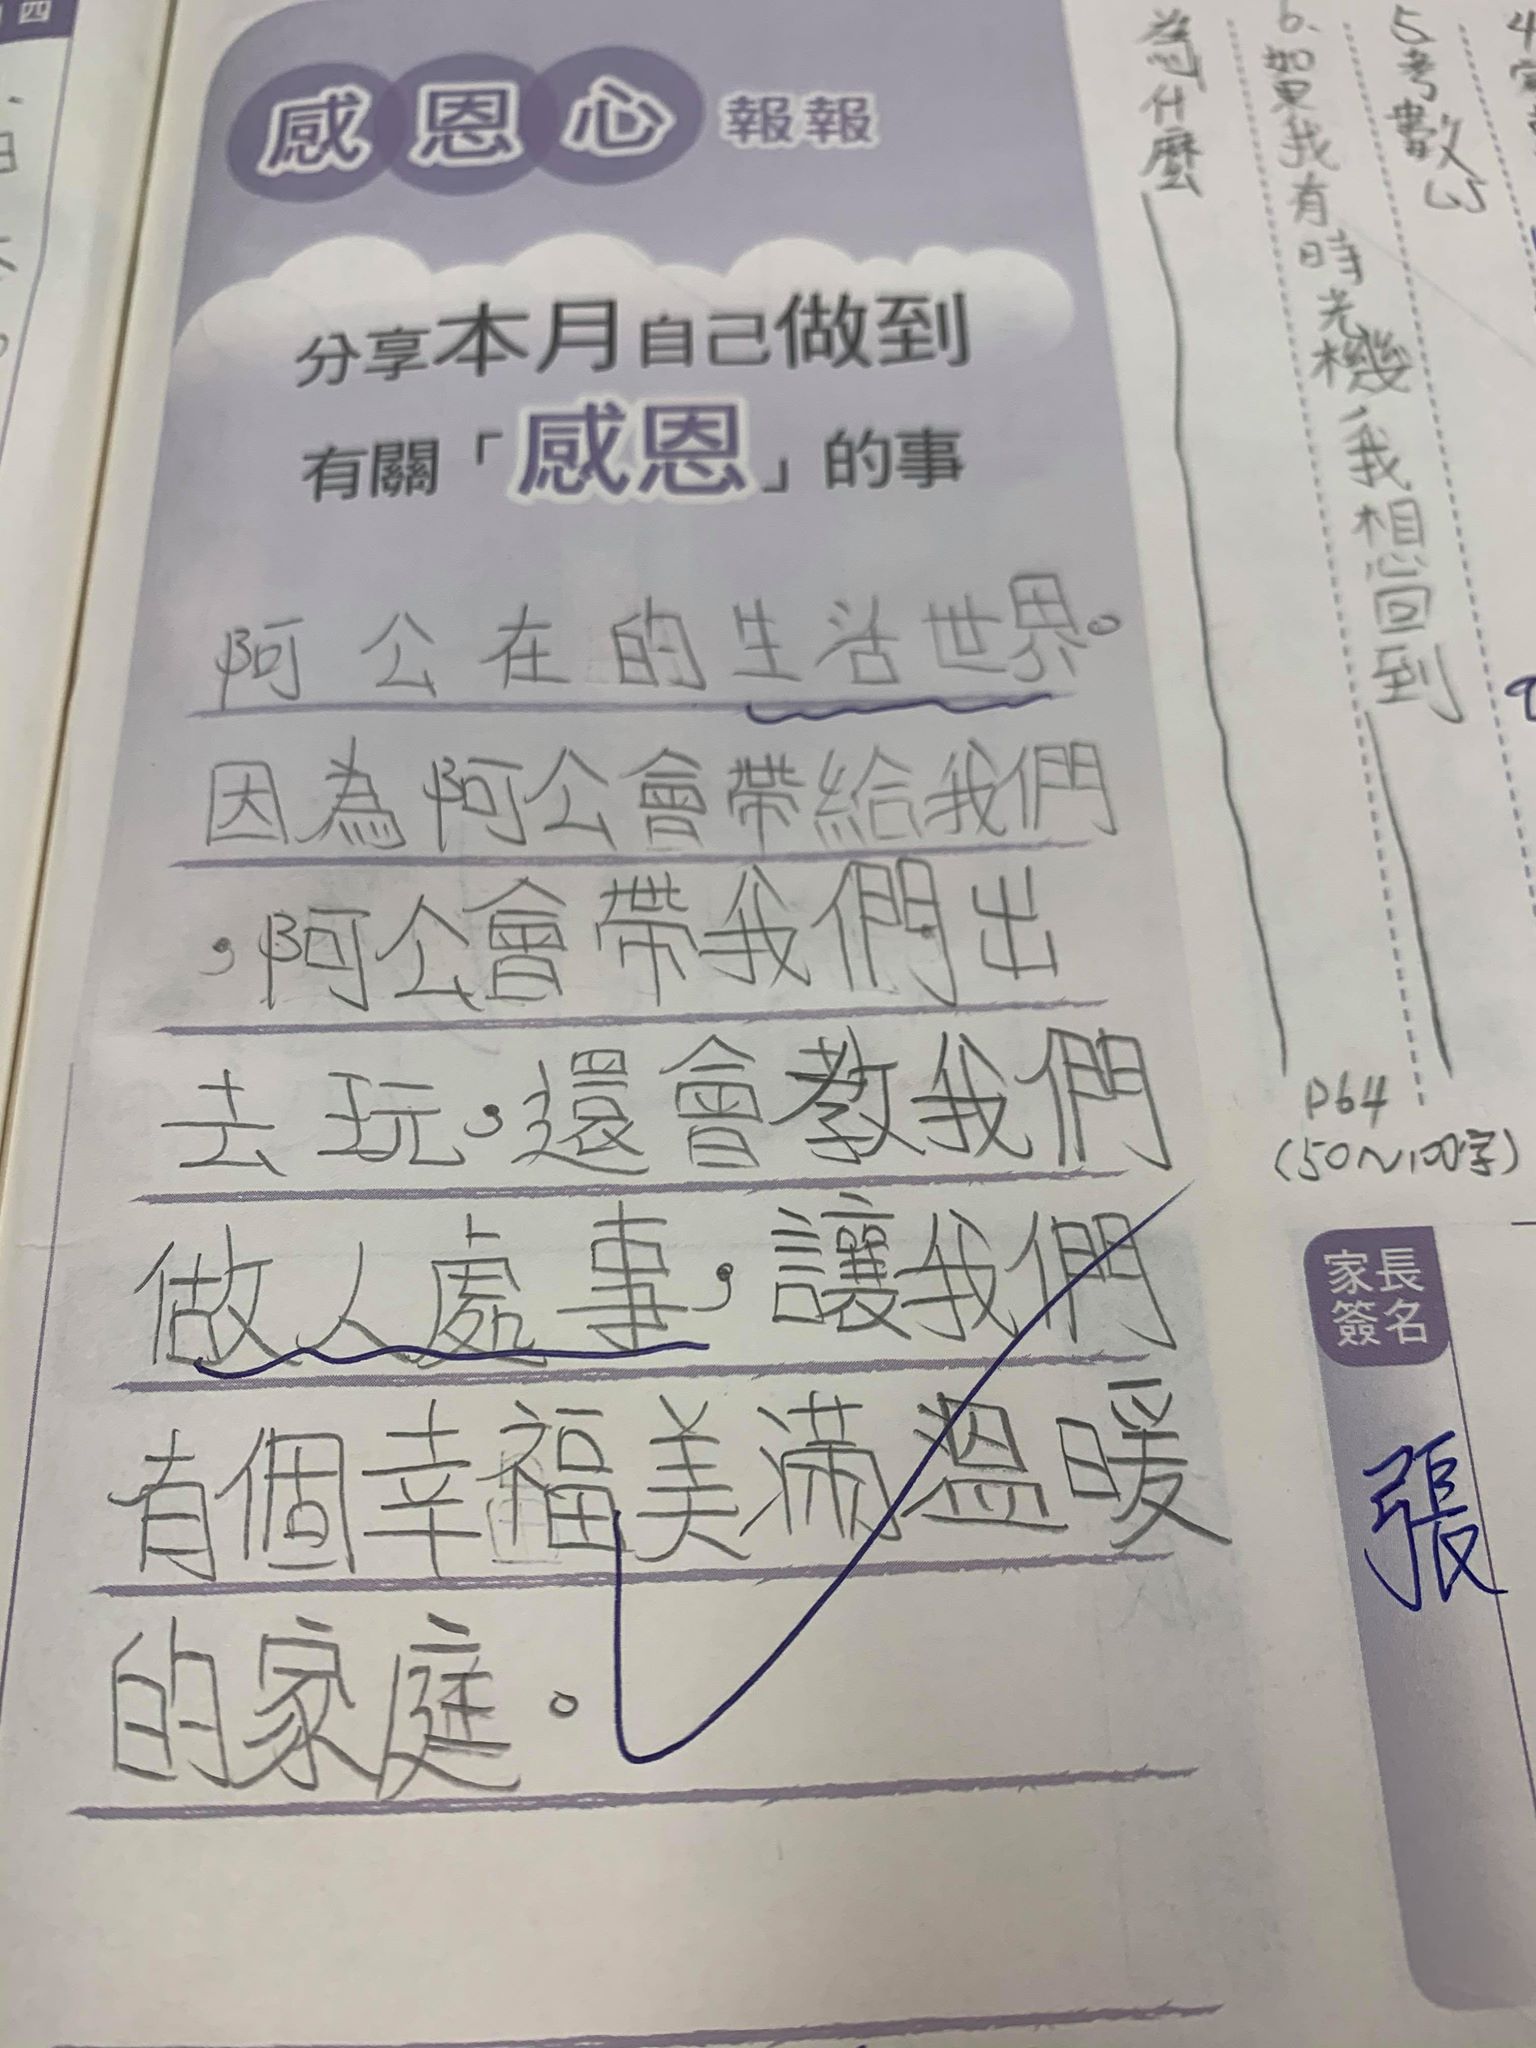 感恩心報報
分享本月自己做到
有關「感恩」的事
阿公在的生活世界。
因為阿公會帶給我們
，阿公會帶我們出
去玩，還會教我們
做人處事，讓我們
有個幸福美滿溫暖
的家庭。
5.考數心
6.如果我有時光機，我想回到
為什麼
P64
(50~100字)
家長
簽名
張
四